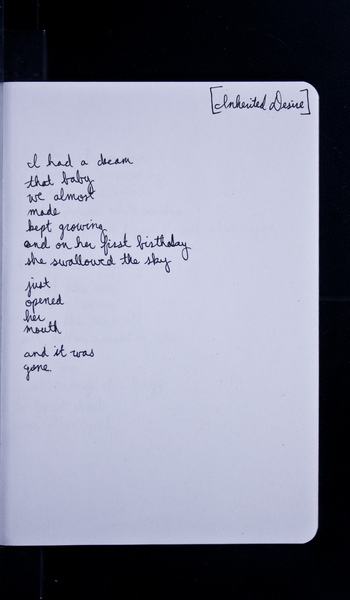 [Inherited Desire]
I had a dream
that baby
we almost
made
kept growing
and on her first birthday
she swallowed the sky
just
opened
her
mouth
and it was
gone.